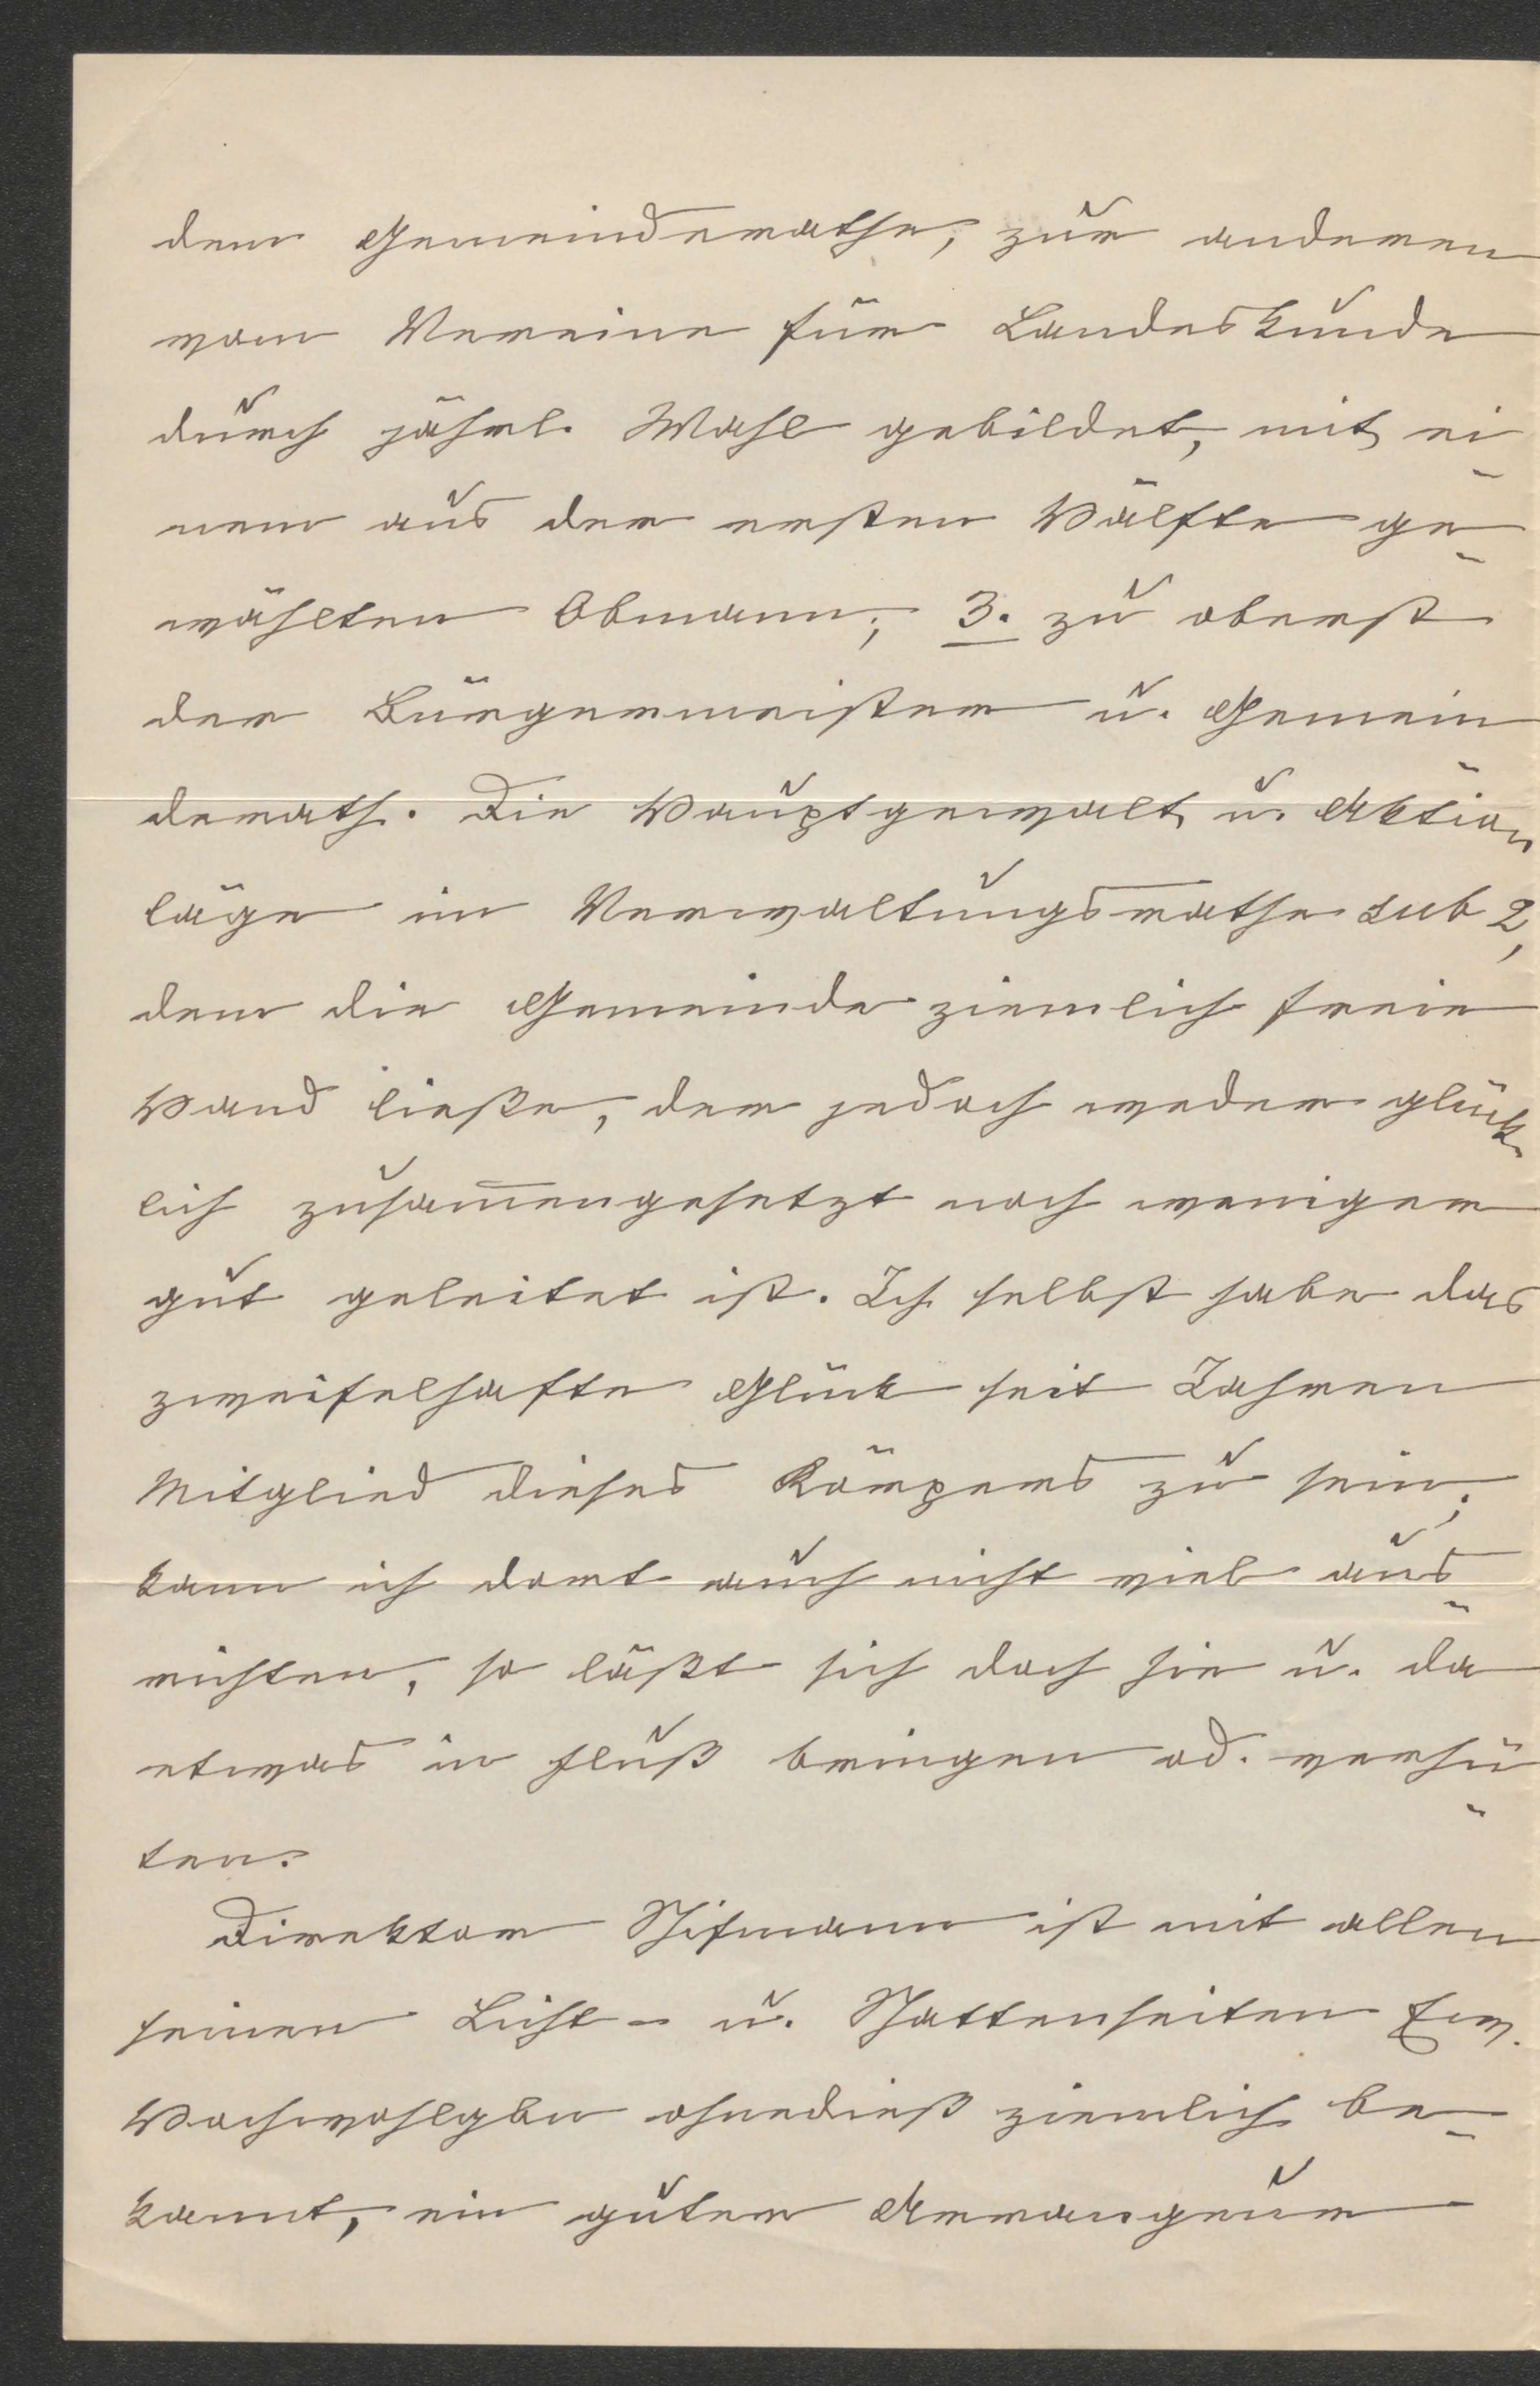 dem Gemeinderathe, zur anderen
vom Vereine für Landeskunde
durch jährl. Wahl gebildet, mit ei-
nem aus der ersten Hälfte ge-
wählten Obmann; 3. zu oberst
der Bürgermeister u. Gemein-
derath. Die Hauptgewalt u. Aktion
läge im Verwaltungsrathe sub 2,
dem die Gemeinde ziemlich freie
Hand ließe, der jedoch weder glück-
lich zusam̅engesetzt noch weniger
gut geleitet ist. Ich selbst habe das
zweifelhafte Glück seit Jahren
Mitglied dieses Körpers zu sein;
kann ich dort auch nicht viel aus-
richten, so läßt sich doch hie u. da
etwas in Fluß bringen od. verhü-
ten.
Direktor Schifmann ist mit allen
seinen Licht- u. Schattenseiten Euer
Hochwohlgbn ohnedieß ziemlich be-
kannt, ein guter Arrangeur